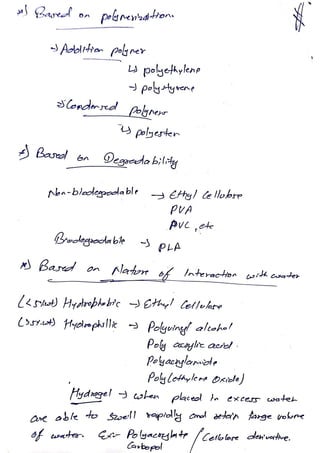 *) Based on polymerization.
→ Addition polymer
↳ polyethylene
→ polystyrene
→ Condensed polymer
↳ polyester
*) Based on Degradability
Non-biodegradable → Ethyl Cellulose
PVA
PVC, etc
Biodegradable → PLA
*) Based on Nature of Interaction with water
(<5%wt) Hydrophobic → Ethyl Cellulose
(>5%wt) Hydrophillic → Polyvinyl alcohol
Poly acrylic acid.
Polyacrylamide
Poly(ethylene Oxide)
Hydrogel → when placed in excess water
are able to swell rapidly and retain large volume
of water. Ex:- Polyacrylate / Cellulose derivative.
Carbopol